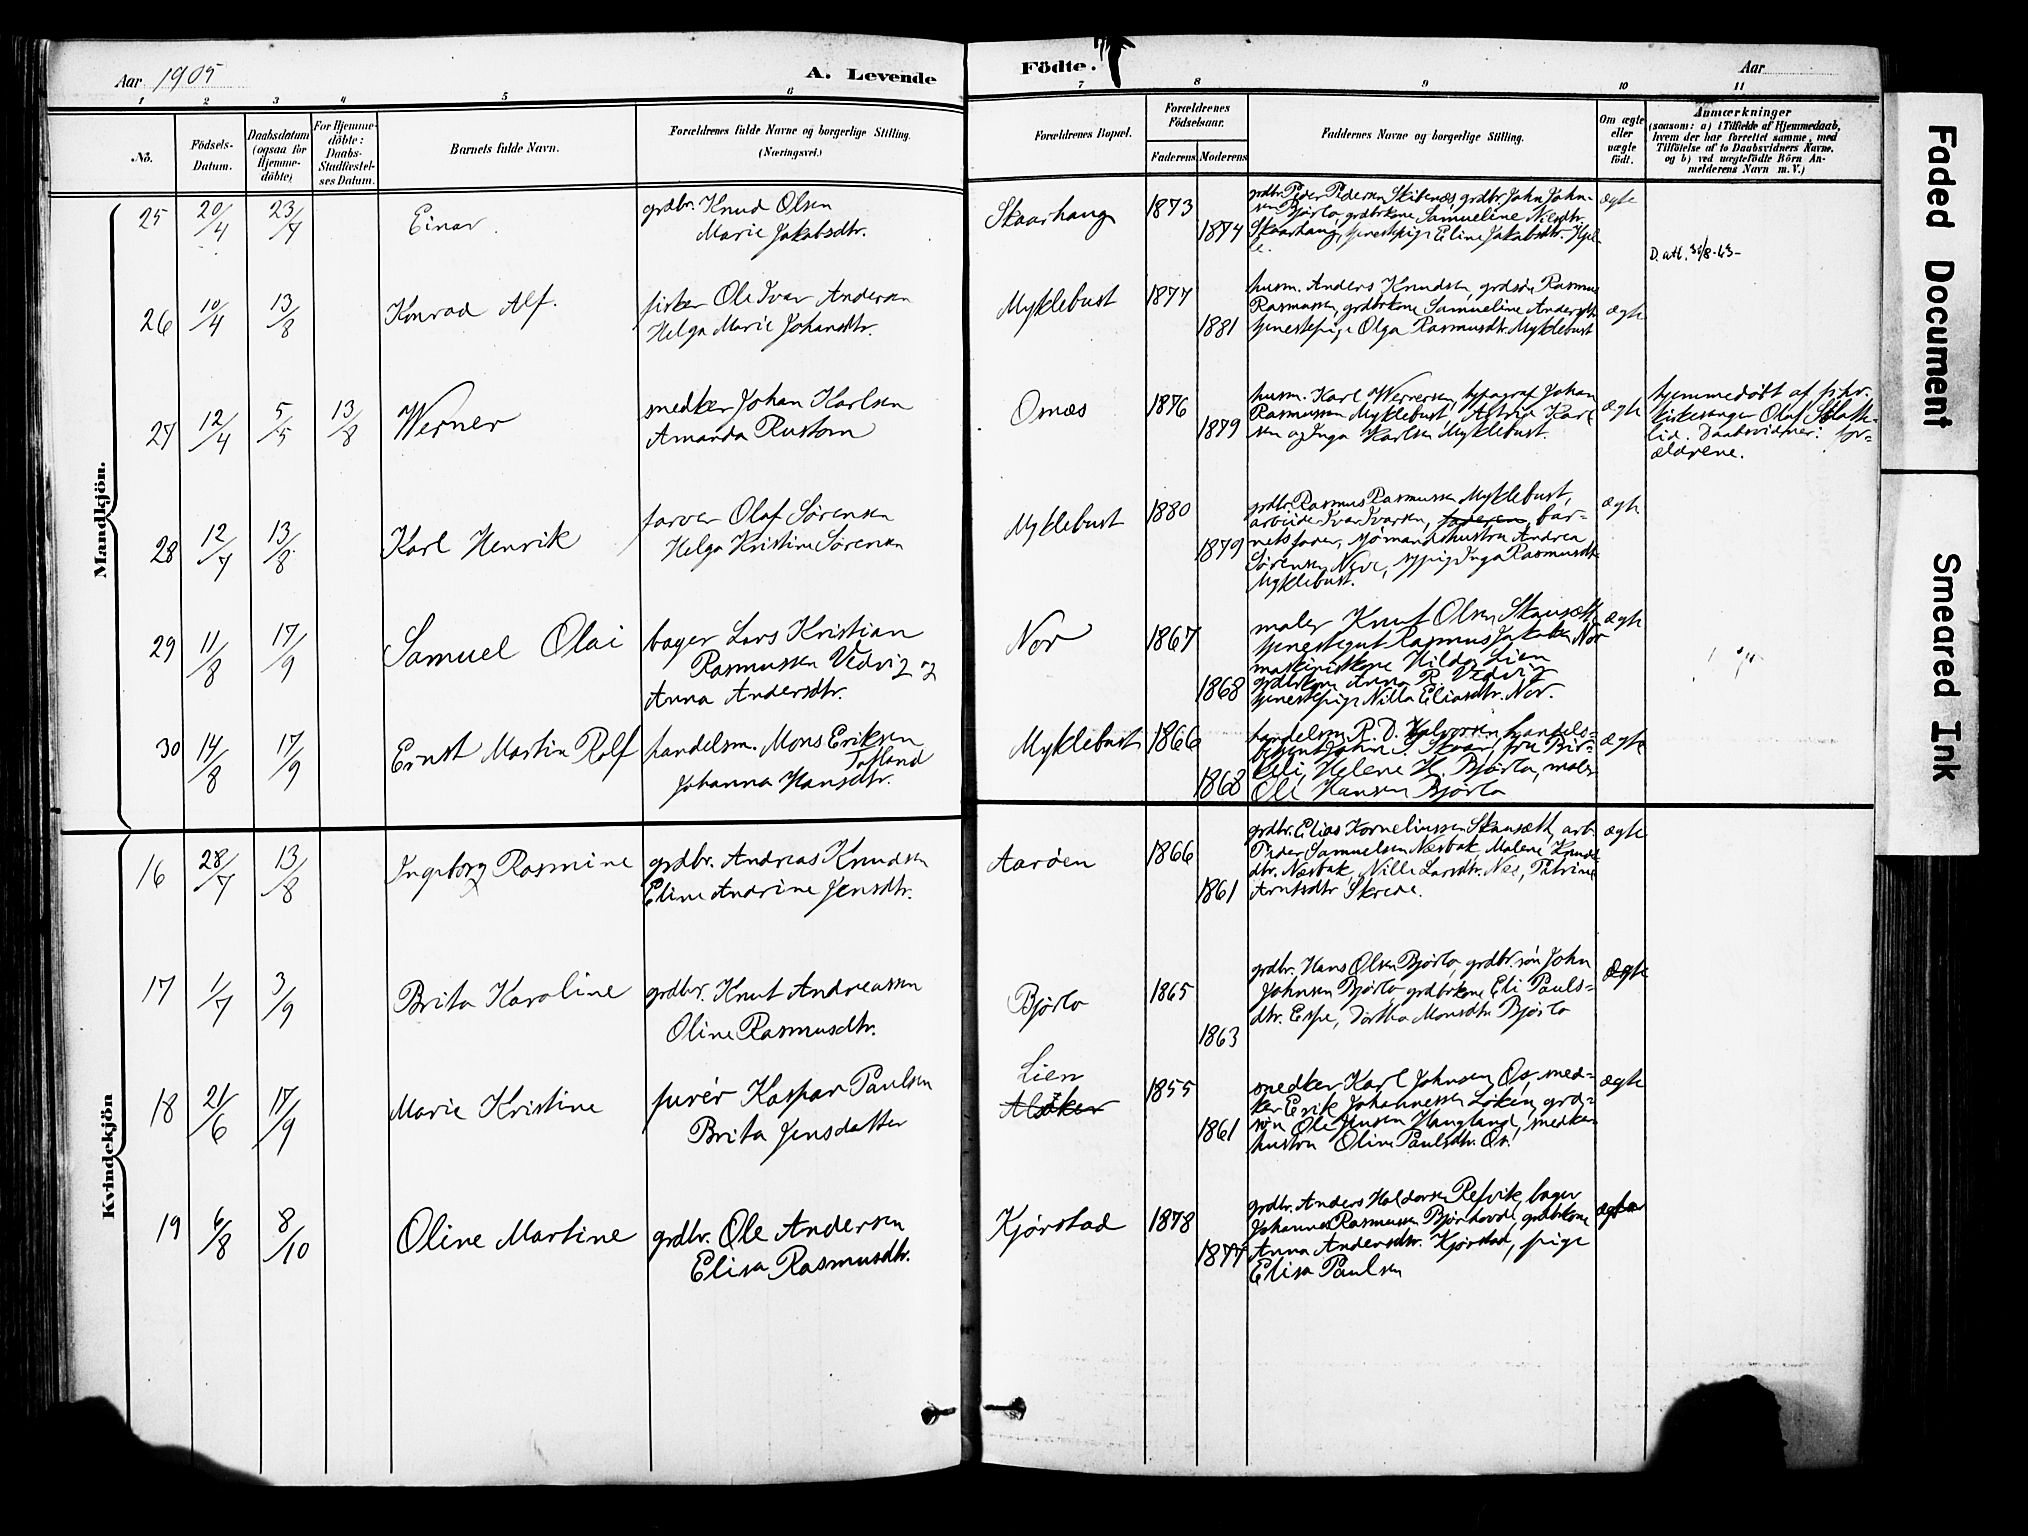 Aar 1905
A. Levende
Födte.
Aar
1 2 3 4 5 6 7 8 9 10 11
No.
Födsels-
Datum.
Daabsdatum
(ogsaa for
Hjemme-
döbte)
For Hjemme-
döbte:
Daabs-
Stadfæstel-
ses Datum.
Barnets fulde Navn.
Forældrenes fulde Navne og borgerlige Stilling.
(Næringsvei.)
Forældrenes Bopæl.
Forældrenes
Födselsaar.
Faderens Moderens
Faddernes Navne og borgerlige Stilling.
Om ægte
eller
uægte
födt.
Anmærkninger
(saasom: a) i Tilfælde af Hjemmedaab,
hvem der har forrettet samme, med
Tilföielse af to Daabsvidners Navne,
og b) ved uægtefödte Börn An-
melderens Navn m. V.)
Mandkjön.
25 20/4 23/7 Einar
grdbr. Knud Olsen
Marie Jakobsdtr.
Skaarhaug 1873
1874
grdbr. Peder Pedersen Skibenes, grdbr. John John-
sen Bjørlo, grdbrkone Samueline Nilsdtr.
Skaarhaug, tjenestepige Eline Jakobsdtr. Hjel-
le.
ægte
D. atl. 30/8-63-
26 10/4 13/8 Konrad Alf.
fisker Ole Ivar Andersen
Helga Marie Johansdtr.
Myklebust 1877
1881
husm. Anders Knudsen, grdsøn Rasmus
Rasmussen, grdbrkone Samueline Andersdtr.
tjenestepige Olga Rasmusdtr. Myklebust
ægte
27 12/4 5/5 13/8 Werner
snedker Johan Karlsen
Amanda Rustøen
Osnæs 1876
1879
husm. Karl Wernersen, typograf Johan
Rasmussen Myklebust, Astrid Karl
sen og Inga Karlsen Myklebust.
ægte
hjemmedøbt af
kirkesanger Olaf
lid. Daabsvidner: for-
ældrene.
28 12/7 13/8 Karl Henrik
farver Olaf Sørensen
Helga Kristine Sørensen
Myklebust 1880
1879
grdbr. Rasmus Rasmussen Myklebust,
arbeider Ivar Ivarsen, faderen, bar-
nets fader, sjømandshustru Andrea
Sørensen Neve, sypige Inga Rasmusdtr.
Myklebust.
ægte
29 11/8 17/9 Samuel Olai
bager Lars Kristian
Rasmussen Vedvig og
Anna Andersdtr.
Nor 1867
1868
maler Knut Olsen Skansæth,
tjenestegut Rasmus Jakobsen Nor
maskinistkone Hilda Lien
grdbrkone Anna R. Vedvig
tjenestepige Nilla Eliasdtr. Nor.
ægte
30 14/8 17/9 Ernst Martin Rolf
handelsm. Mons Eriksen
Tofland
Johanna Hansdtr.
Myklebust 1866
1868
handelsm. R. D. Halvorsen, handels-
betjent John S. fru Bir-
keli, Helene H. Bjørlo, maler
Ole Hansen Bjørlo
ægte
Kvindekjön
16 28/7 13/8 Ingeborg Rasmine
grdbr. Andreas Knudsen
Eline Andrine Jensdtr.
Aarøen 1866
1861
grdbr. Elias Korneliussen Skansæth, arb.
Peder Samuelsen Næsbak, Malene Knuds
dtr. Næsbak, Nille Larsdtr. Nes, Petrine
Arntsdtr. Skrede.
ægte
17 1/7 3/9 Brita Karoline
grdbr. Knut Andreassen
Oline Rasmusdtr.
Bjørlo 1865
1863
grdbr. Hans Olsen Bjørlo, grdbr. søn John
Johnsen Bjørlo, grdbrkone Eli Pauls-
dtr. Espe, Dorthea Monsdtr. Bjørlo
ægte
18 21/6 17/9 Marie Kristine
furér Kaspar Paulsen
Brita Jensdatter
Lien
Alsaker
1855
1861
snedker Karl Johnsen Os, sned-
ker Erik Johannessen Løken, grd-
søn Ole Jensen Haugland, snedker
hustru Oline Paulsdtr. Os.
ægte
19 6/8 8/10 Oline Martine
grdbr. Ole Andersen
Elisa Rasmusdtr.
Kjørstad 1878
1877
grdbr. Anders Haldorsen Refvik, bager
Johannes Rasmussen Bjørhovde, grdbrkone
Anna Andersdtr. Kjørstad, pige
Elisa Paulsen
ægte
Faded Document
Smeared Ink